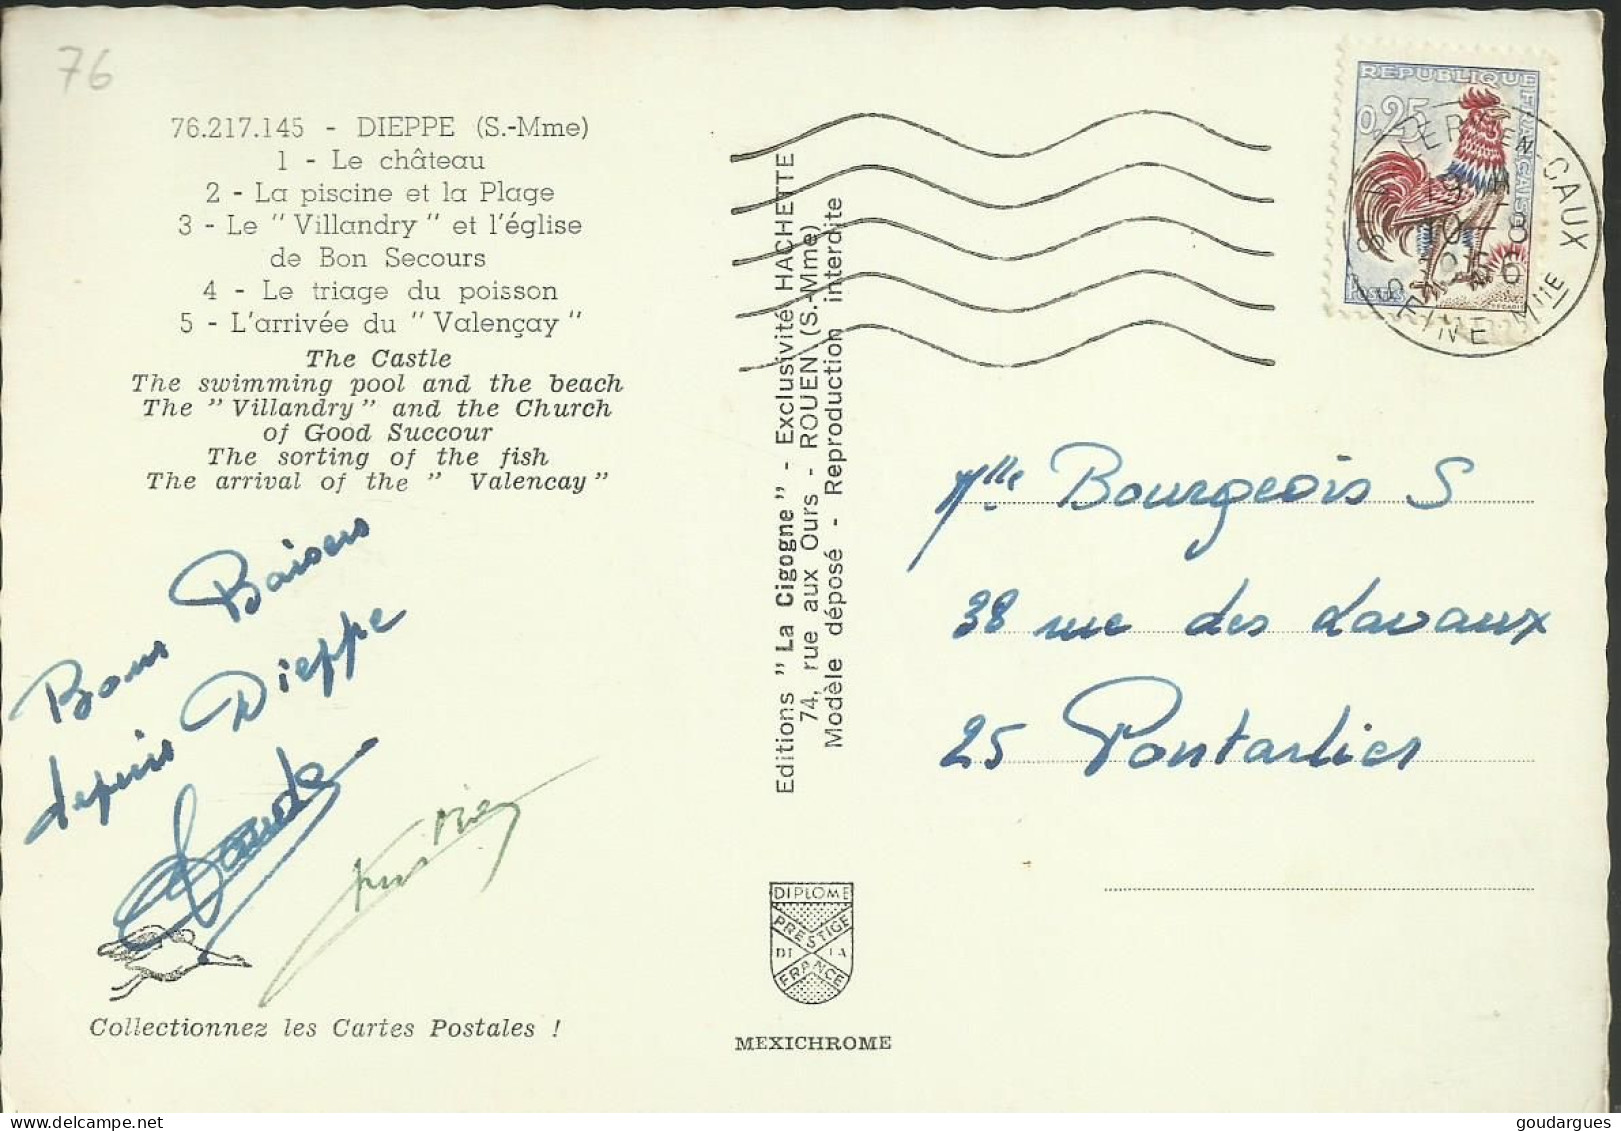 76
76.217.145 - DIEPPE (S.-Mme)
1 - Le château
2 - La piscine et la Plage
3 - Le " Villandry " et l'église
de Bon Secours
4 - Le triage du poisson
5 - L'arrivée du " Valençay "
The Castle
The swimming pool and the beach
The " Villandry " and the Church
of Good Succour
The sorting of the fish
The arrival of the " Valencay "
Bons Baisers
depuis Dieppe
Collectionnez les Cartes Postales !
Editions " La Cigogne " - Exclusivité HACHETTE
74, rue aux Ours - ROUEN (S.-Mme)
Modèle déposé - Reproduction interdite
DIPLOME
PRESTIGE
DE LA
FRANCE
MEXICHROME
REPUBLIQUE FRANÇAISE
0,25
Postes
EN-CAUX
19 H
10-8
SEINE Mme
Mlle Bourgeois S
38 rue des Lavaux
25 Pontarlier
goudargues